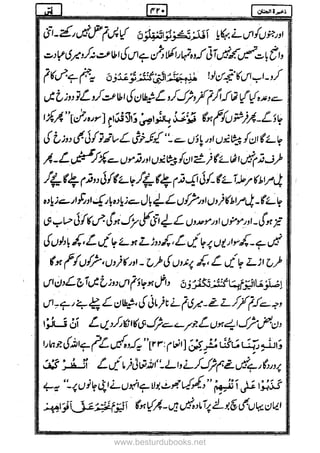 ذخیرۃ الجنان ۴۲۰ یٰسٓ
اور جنوں کو اس نے بہکایا اَفَلَمْ تَکُوْنُوْا تَعْقِلُوْنَ کیا پس تم عقل نہیں رکھتے۔ اتنی
واضح بات تمھیں سمجھ نہیں آتی کہ وہ تمہارا کھلا دشمن ہے اس کی اطاعت نہ کرو میری عبادت
کرو۔ اب اس کا نتیجہ سن لو! هٰذِهٖ جَهَنَّمُ الَّتِیْ كُنْتُمْ تُوْعَدُوْنَ یہ جہنم ہے جس کا تم
سے وعدہ کیا گیا تھا کہ اگر تم کفر و شرک کرو گے شیطان کی اطاعت کرو گے تو دوزخ میں
جاؤ گے۔ پھر فرشتوں کو حکم ہوگا فَیُؤْخَذُ بِالنَّوَاصِیْ وَالْاَقْدَامِ [سورہ رحمٰن] "پھر پکڑا
جائے گا ان کو پیشانیوں اور پاؤں سے۔" کیونکہ خوشی کے ساتھ تو کوئی بھی دوزخ کی
طرف قدم نہیں اٹھائے گا فرشتے ان کو پیشانیوں اور قدموں سے پکڑ کر گھسیٹیں گے۔ پھر
پل صراط کا مرحلہ آئے گا۔ کوئی ایک قدم چلے گا نیچے گر جائے گا کوئی دو قدم چلے گا نیچے گر
جائے گا۔ پل صراط کافروں اور مشرکوں کے لیے بال سے زیادہ باریک اور تلوار سے زیادہ
تیز ہو گی۔ اور مومنوں اور موحدوں کے لیے اتنی کھلی سڑک ہوگی کہ جس کا کوئی حساب ہی
نہیں ہے۔ کچھ سواریوں پر جائیں گے، کچھ دوڑتے ہوئے جائیں گے، کچھ بادلوں کی
طرح اڑتے جائیں گے، کچھ پرندوں کی طرح۔ اور کافروں، مشرکوں کو حکم ہو گا
اِصْلَوْهَا الْیَوْمَ بِمَا كُنْتُمْ تَكْفُرُوْنَ داخل ہو جاؤ تم اس دوزخ میں آج کے دن اس
وجہ سے کہ تم کفر کرتے تھے۔ میری تم نے نافرمانی کی، شیطان کے چیلے بنے رہے۔ اس
دن بعض مشرک ایسے ہوں گے جو سرے سے شرک ہی کا انکار کر دیں گے اَنْ قَــالُوْا
وَاللّٰهِ رَبِّنَا مَا كُنَّا مُشْرِكِیْنَ [انعام:۲۳] "یہ کہ وہ کہیں گے قسم ہے اللہ کی جو ہمارا
پروردگار ہے نہیں تھے ہم شرک کرنے والے۔" اللہ تعالیٰ فرمائیں گے اُنْــظُــرْ كَیْفَ
كَذَبُوْا عَلٰی اَنْفُسِهِمْ "دیکھو کیسا جھوٹ بولا ہے انہوں نے اپنی جانوں پر۔" یہ بے
ایمان یہاں بھی سچ بولنے پر آمادہ نہیں ہیں۔ پھر کیا ہوگا اَلْیَوْمَ نَخْتِمُ عَلٰٓی اَفْوَاهِهِمْ
www.besturdubooks.net